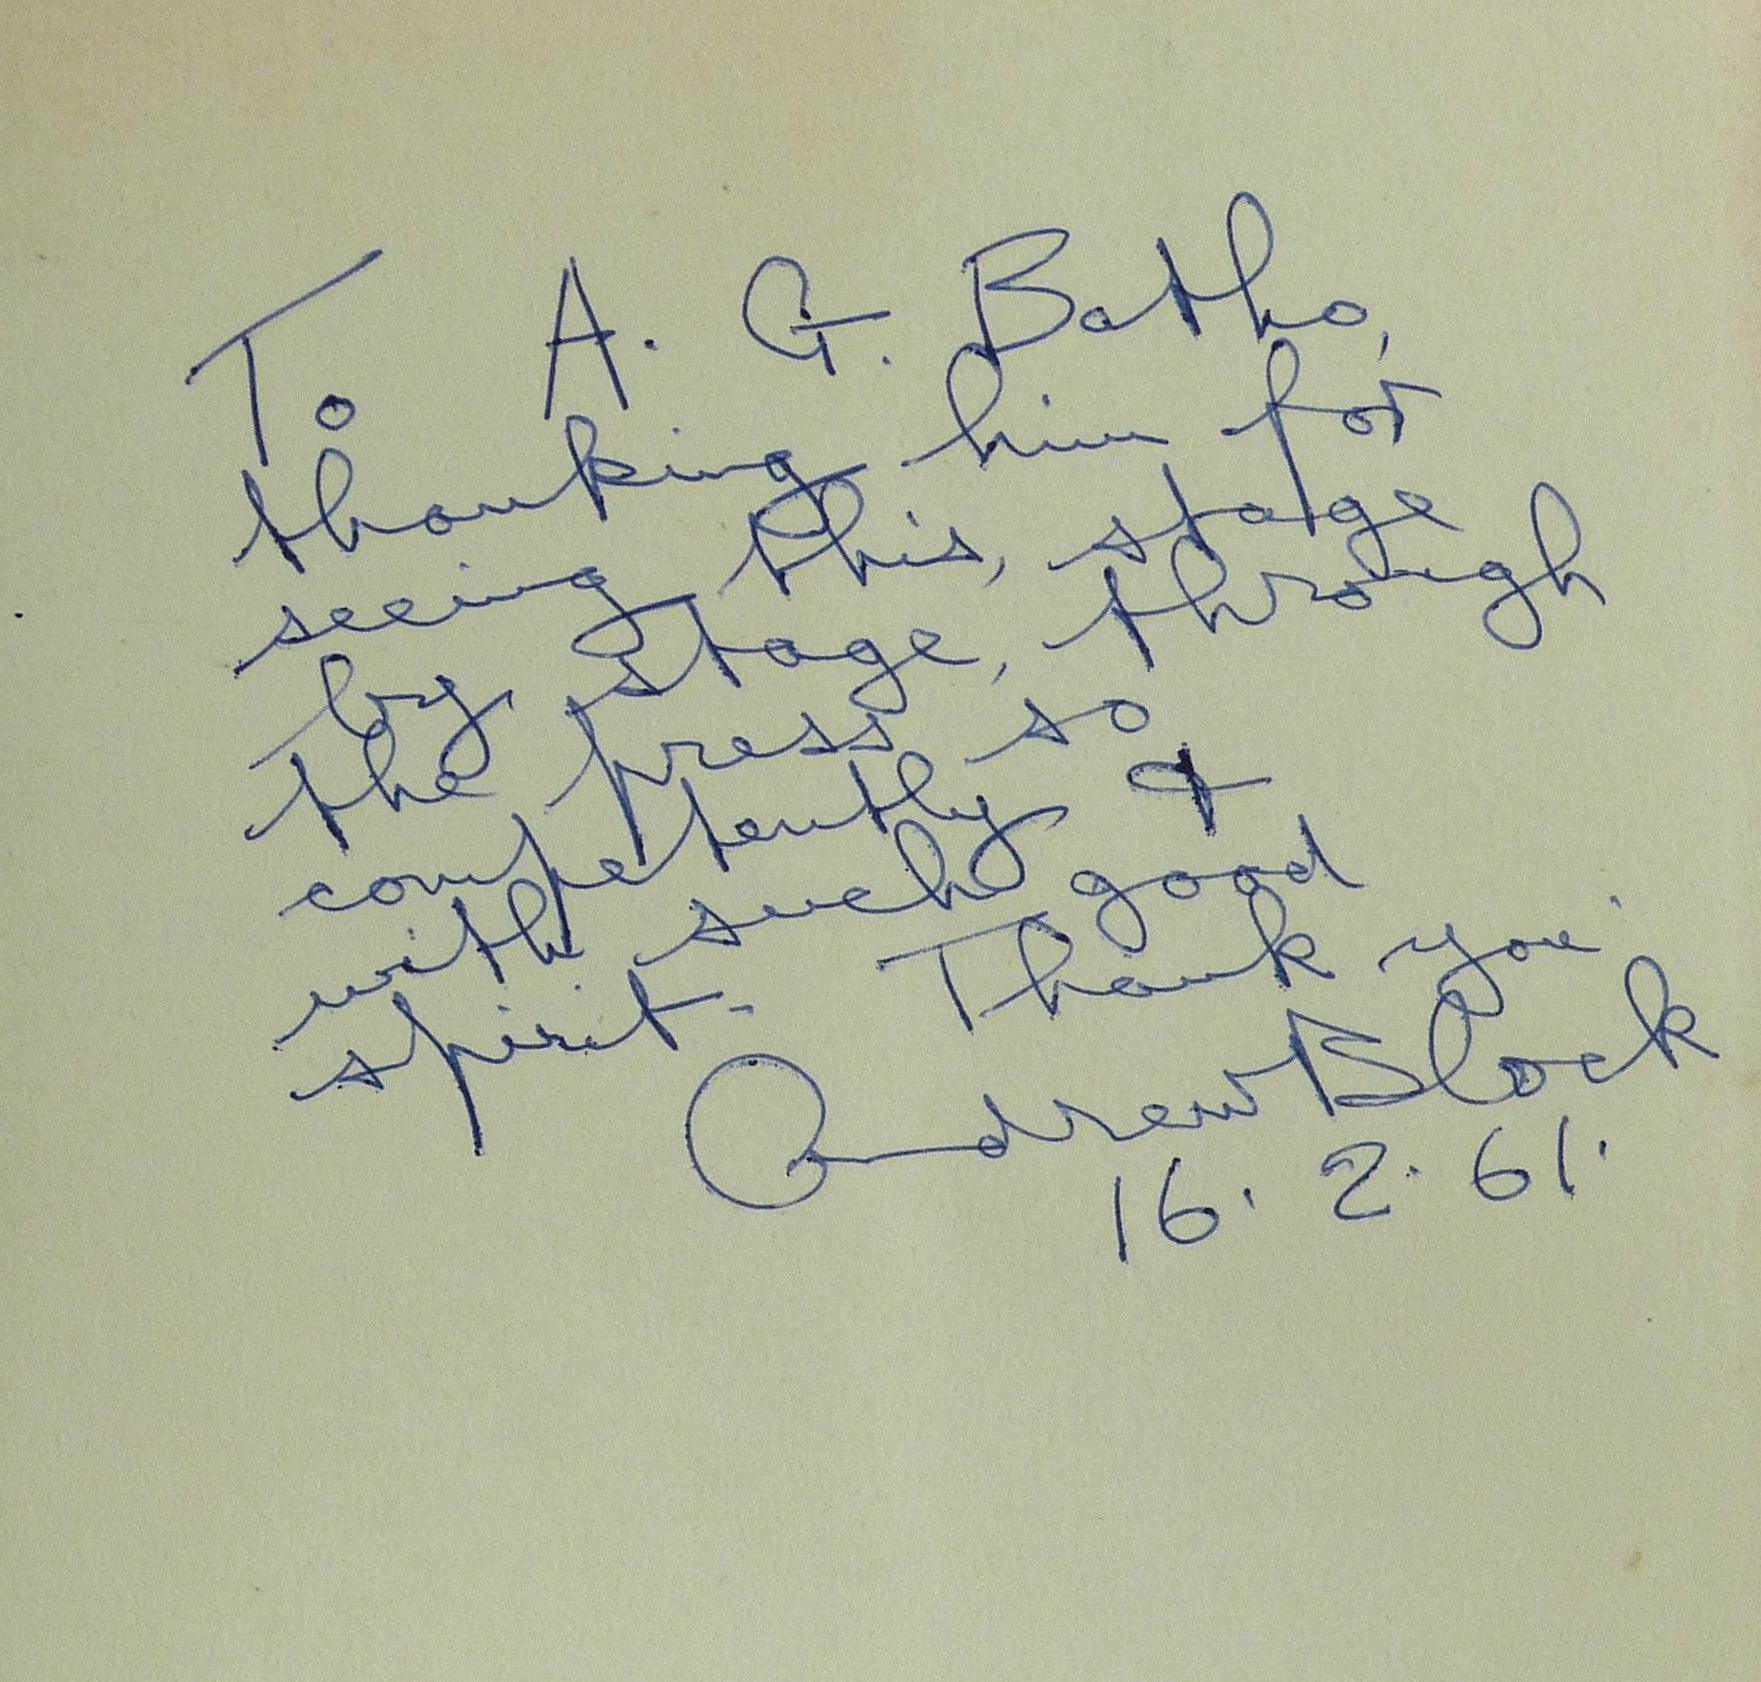 To A. G. Batho,
thanking him for
seeing this, stage
by stage, through
the press so
competently &
with such good
spirit. Thank you.
Andrew Block
16. 2. 61.